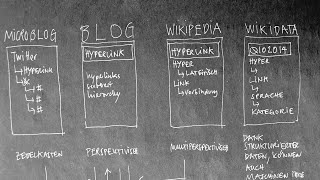 MICROBLOG
Twitter
HYPERLINK
#
#
#
ZEDELKASTEN
BLOG
HYPERLINK
Hyperlinks
subvert
hierarchy
PERSPEKTIVISCH
WIKIPEDIA
HYPERLINK
HYPER
↳ LATEINISCH
LINK
↳ Verbindung
MULTIPERSPEKTIVISCH
WIKIDATA
HYPER
↳
LINK
↳
SPRACHE
↳
KATEGORIE
DANK
STRUKTURIERTER
DATEN, KÖNNEN
AUCH
MASCHINEN